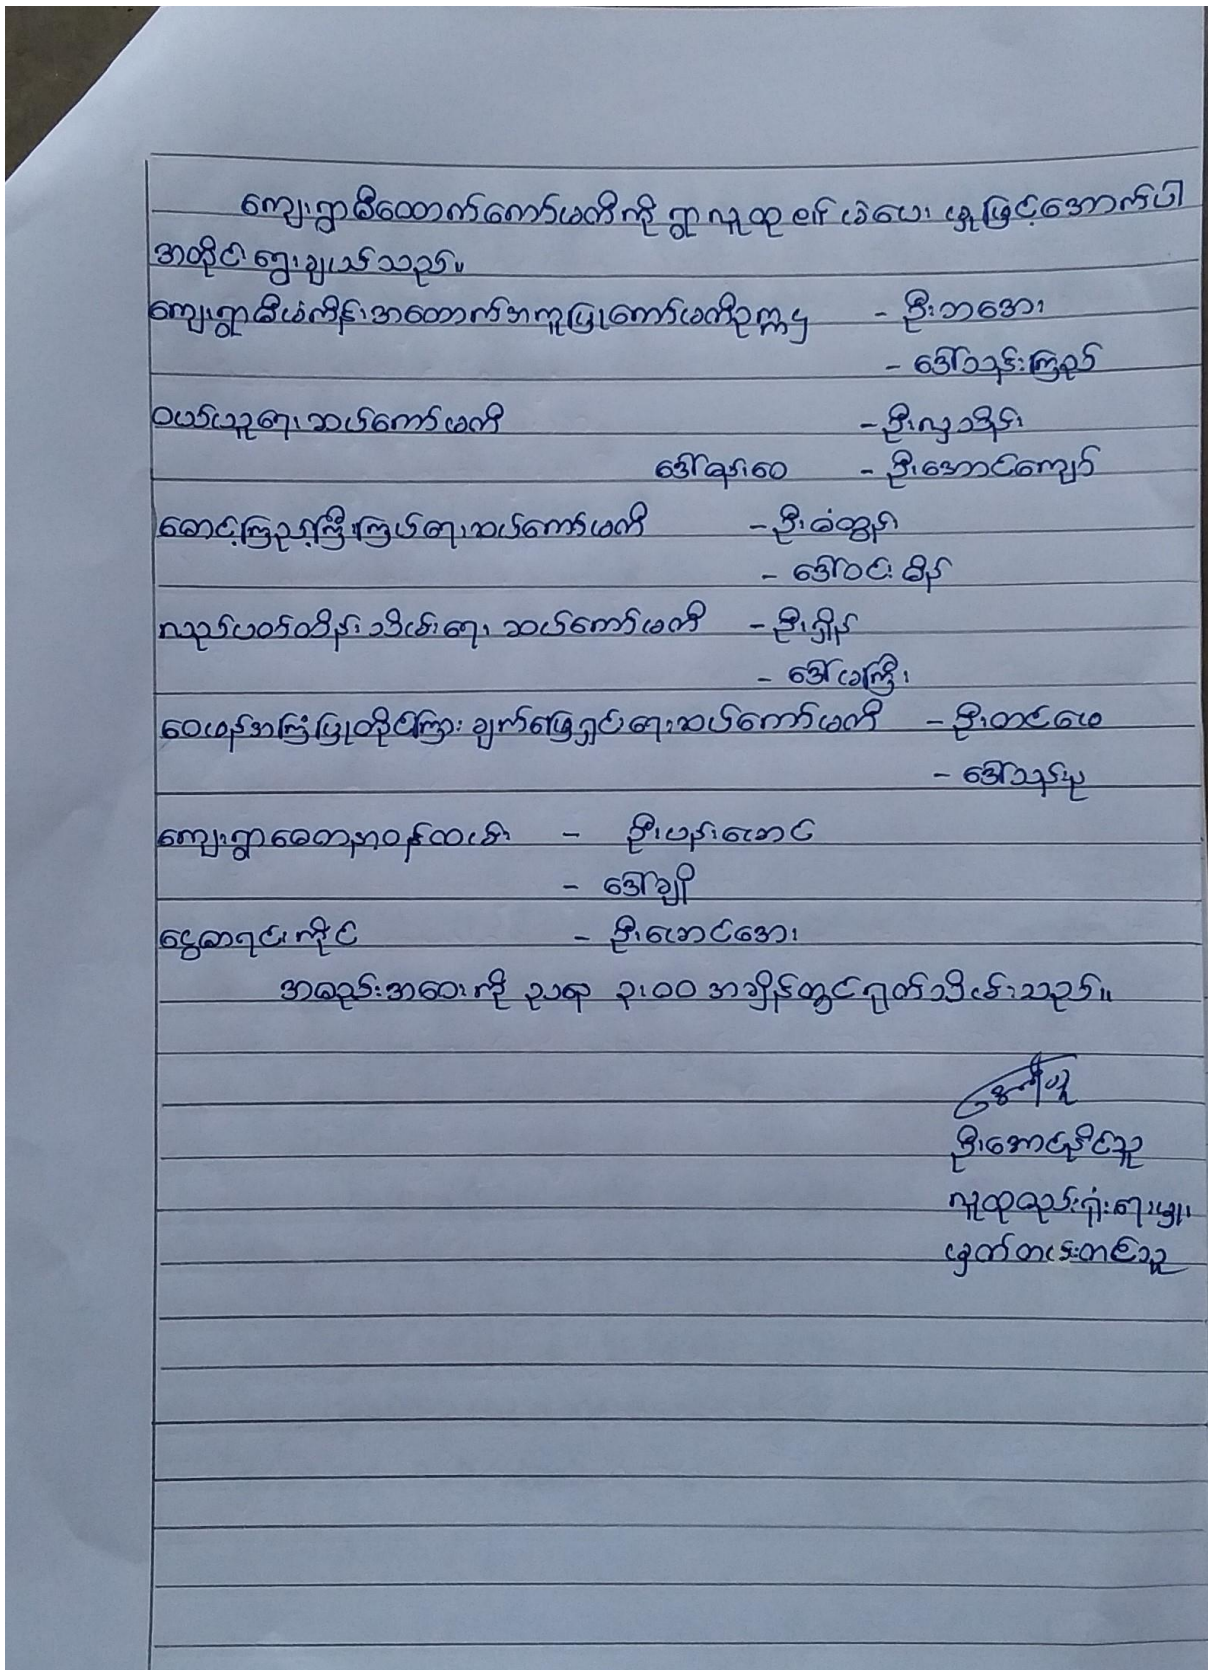 ကျေးရွာစီထောက်ကော်မတီကို ရွာလူထု၏ မဲပေး မှုဖြင့်အောက်ပါ
အတိုင်း ရွေးချယ်သည်။
ကျေးရွာစီမံကိန်းအထောက်အကူပြုကော်မတီဥက္ကဌ - ဦးဘအေး
- ဒေါ်သန်းကြည်
ဝယ်ယူရေးဆပ်ကော်မတီ - ဦးလှသိန်း
ဒေါ်ရန်ဝေ - ဦးအောင်ကျော်
စောင့်ကြည့်ကြီးကြပ်ရေးဆပ်ကော်မတီ - ဦးစံထွန်း
- ဒေါ်ဝင်းစိန်
လည်ပတ်ထိန်းသိမ်းရေး ဆပ်ကော်မတီ - ဦးရှိန်
- ဒေါ်မကြီး
ဝေဖန်အကြံပြုတိုင်ကြားချက်ဖြေရှင်းရေးဆပ်ကော်မတီ - ဦးတင်မေ
- ဒေါ်သန်းယု
ကျေးရွာစေတနာ့ဝန်ထမ်း - ဦးပန်းမောင်
- ဒေါ်ချို
ငွေစာရင်းကိုင် - ဦးမောင်အေး
အစည်းအဝေးကို ညနေ ၃:၀၀ အချိန်တွင်ရုတ်သိမ်းသည်။
ဦးအောင်နိုင်သူ
လူထုစည်းရုံးရေးမှူး
မှတ်တမ်းတင်သူ